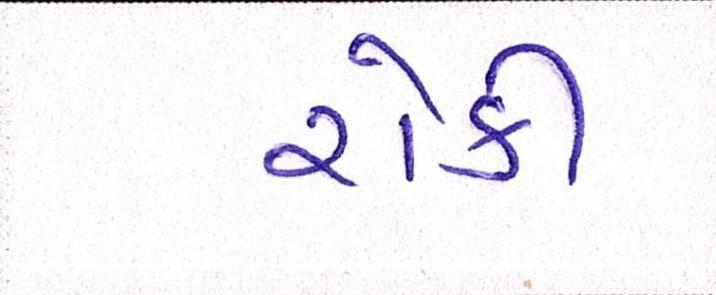 રોકી